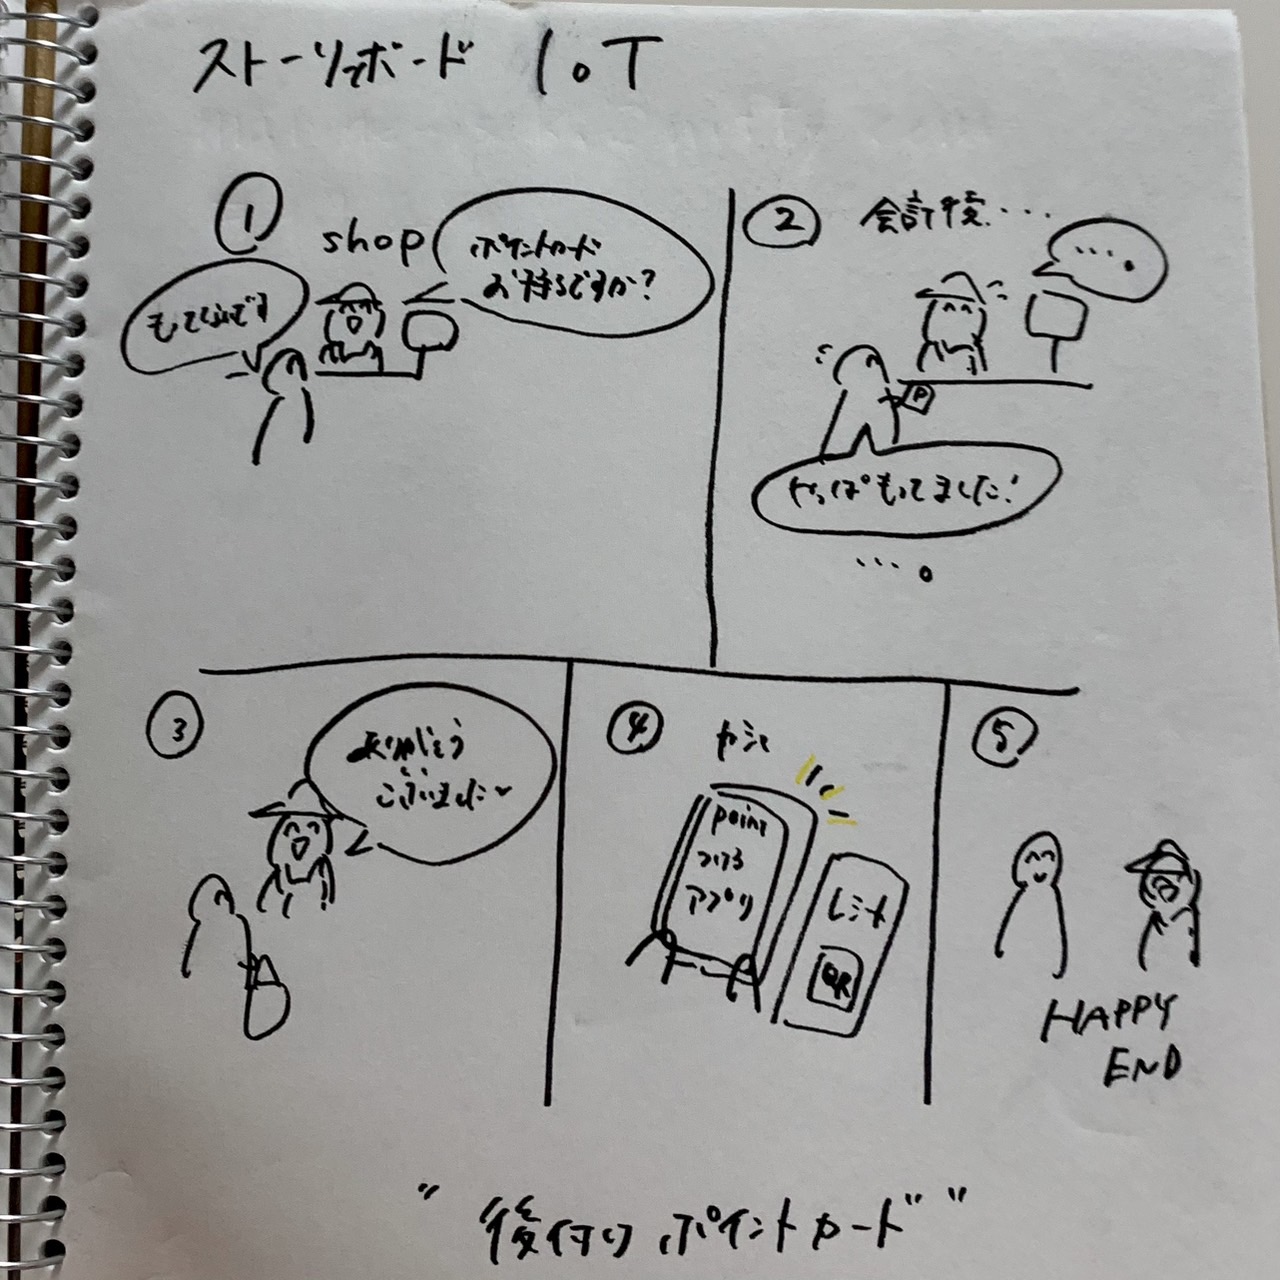 ストーリーボード IoT
①
shop
ポイントカード
お持ちですか?
もってないです
②
会計後・・・・
・・・。
P
やっぱもってました!
・・・。
③
ありがとう
ございました
④
カシャ
point
つける
アプリ
レシート
QR
⑤
HAPPY
END
"後付けポイントカード"